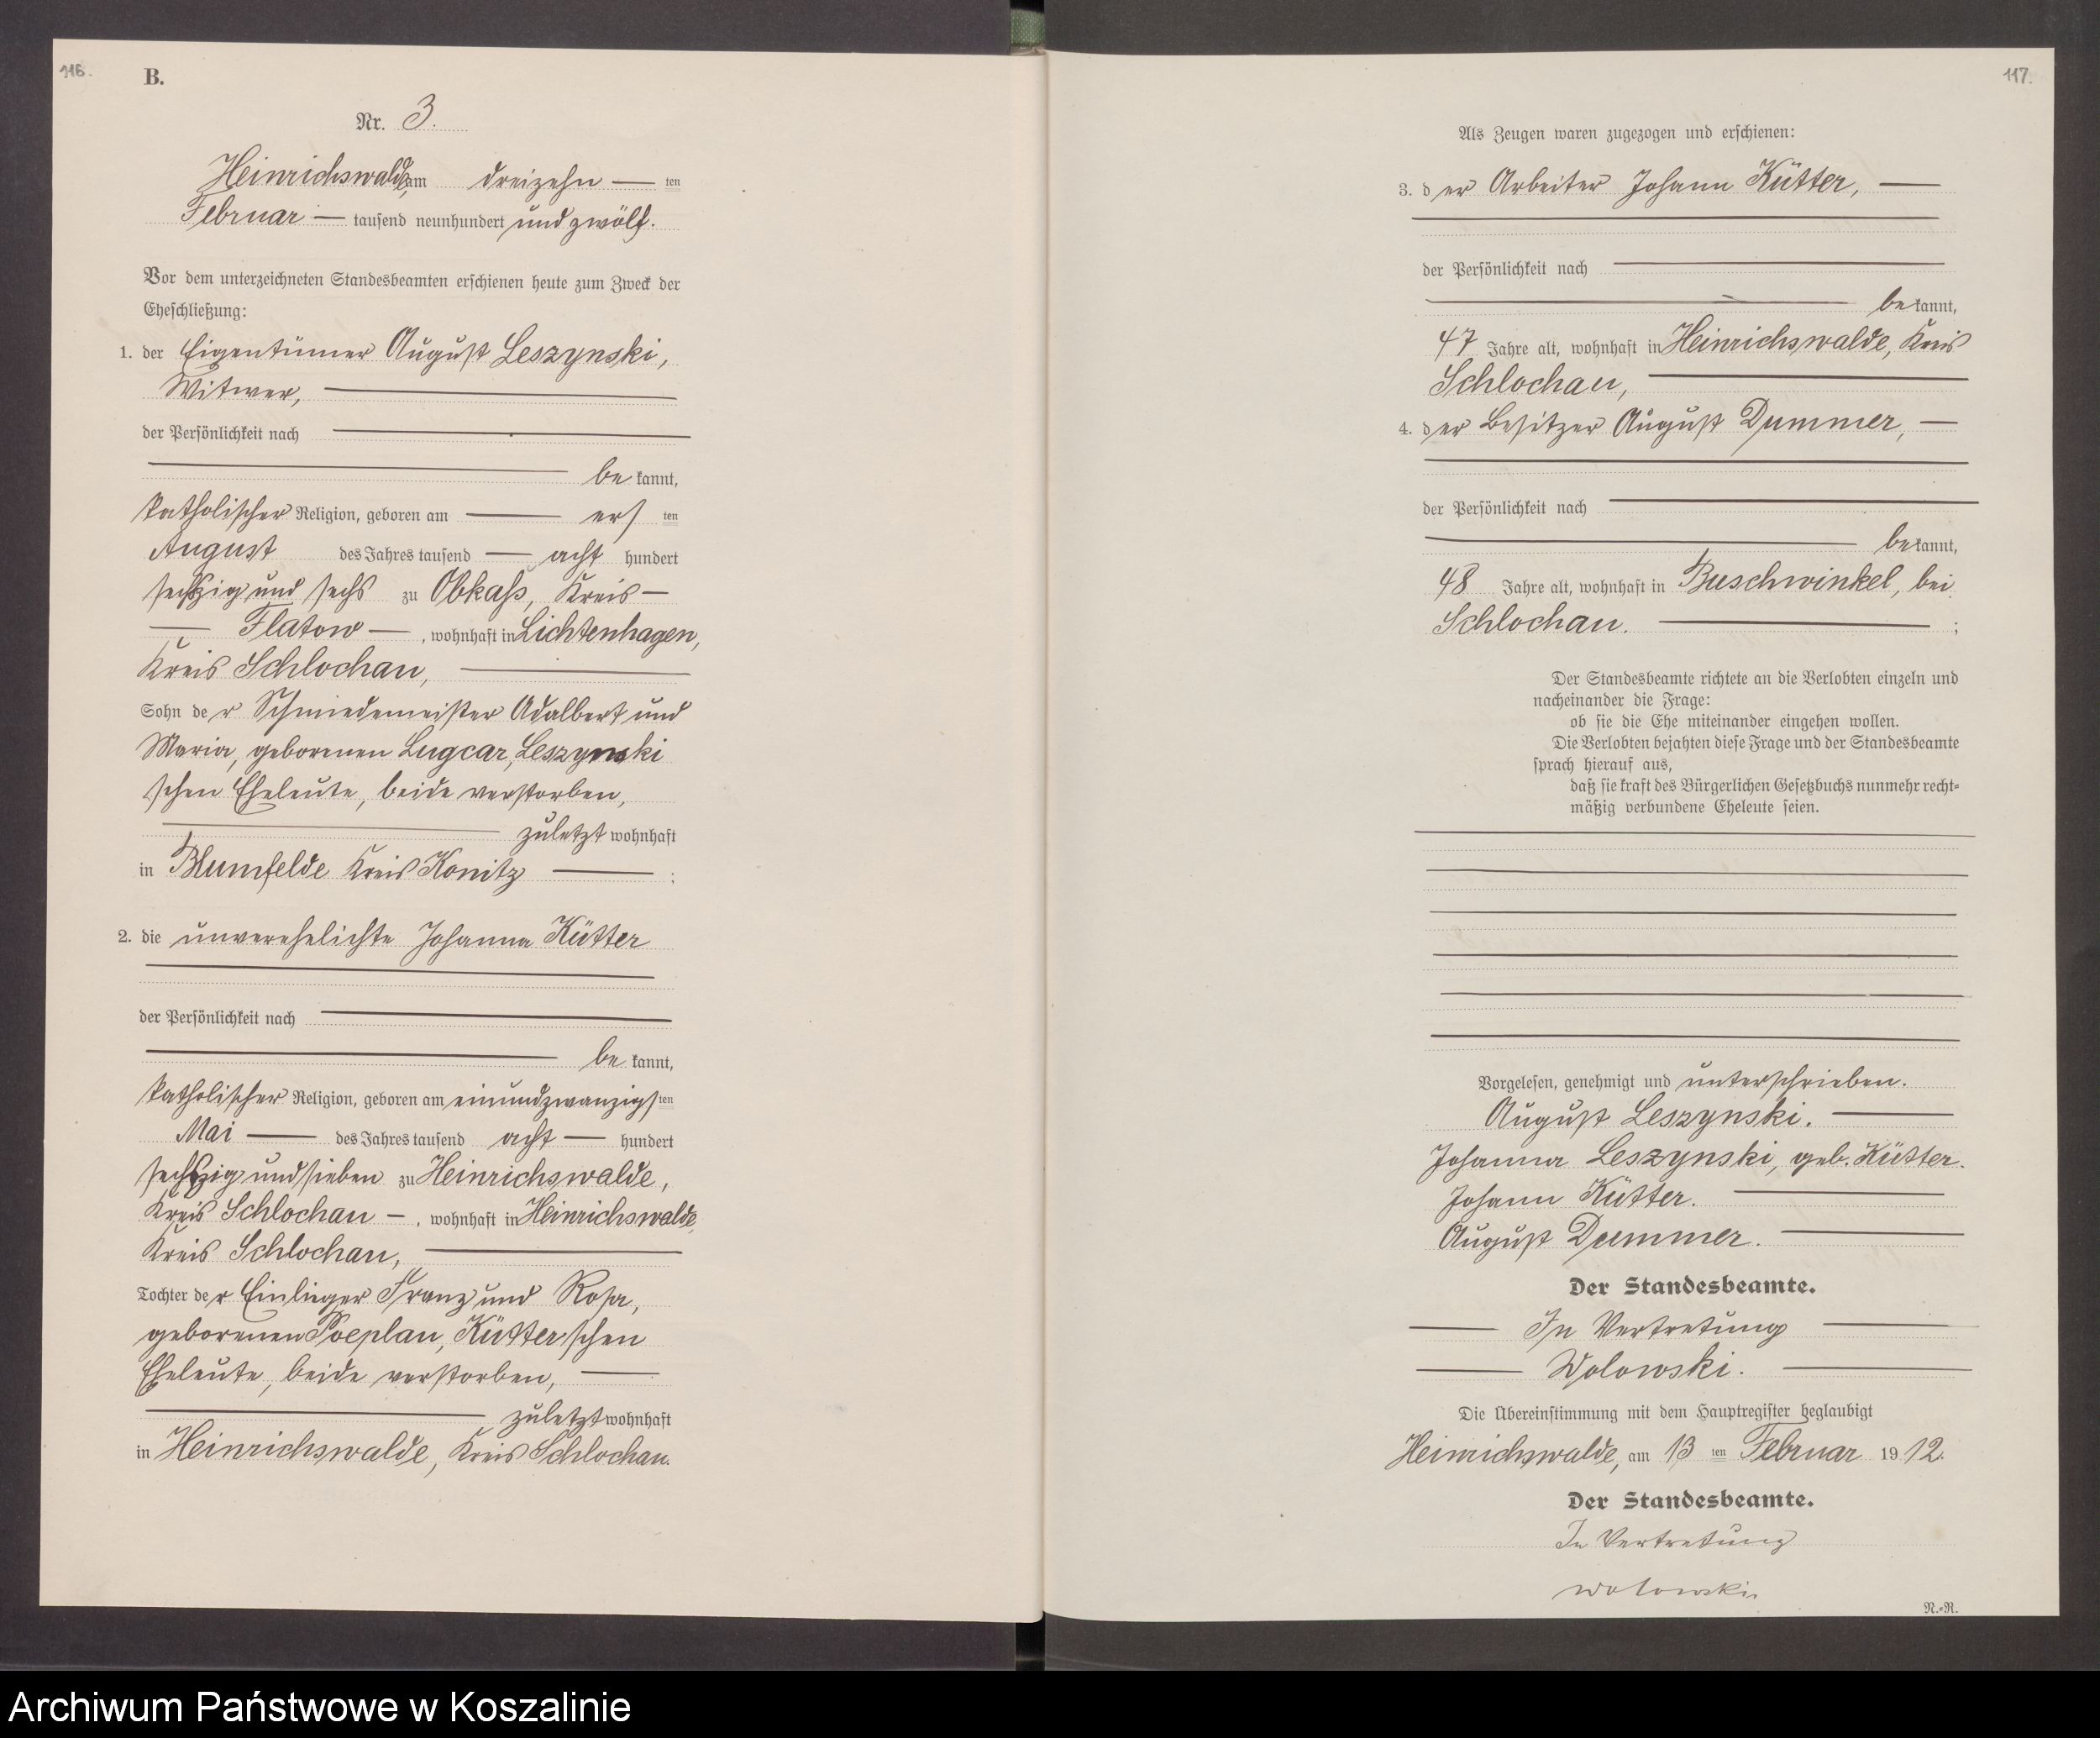 116.
B.
Nr. 3.
Heinrichswalde, am dreizehn — ten
Februar — tausend neunhundert und zwölf.
Vor dem unterzeichneten Standesbeamten erschienen heute zum Zweck der
Eheschließung:
1. der Eigentümer August Leszynski,
Witwer,
der Persönlichkeit nach
be kannt,
katholischer Religion, geboren am — ers ten
August des Jahres tausend — acht hundert
sechszig und sechs zu Obkaß, Kreis —
— Flatow — , wohnhaft in Lichtenhagen,
Kreis Schlochau,
Sohn der Schmiedemeister Adalbert und
Maria, geborenen Lugcar, Leszynski
schen Eheleute, beide verstorben,
zuletzt wohnhaft
in Blumfelde Kreis Konitz — ;
2. die unverehelichte Johanna Kütter
der Persönlichkeit nach
be kannt,
katholischer Religion, geboren am einundzwanzigs ten
Mai — des Jahres tausend acht — hundert
sechszig und sieben zu Heinrichswalde,
Kreis Schlochau — , wohnhaft in Heinrichswalde,
Kreis Schlochau,
Tochter der Einlieger Franz und Rosa,
geborenen Poeplau, Kütter schen
Eheleute, beide verstorben, —
zuletzt wohnhaft
in Heinrichswalde, Kreis Schlochau.
117.
Als Zeugen waren zugezogen und erschienen:
3. der Arbeiter Johann Kütter, —
der Persönlichkeit nach
be kannt,
47 Jahre alt, wohnhaft in Heinrichswalde, Kreis
Schlochau,
4. der Besitzer August Dummer, —
der Persönlichkeit nach
be kannt,
48 Jahre alt, wohnhaft in Buschwinkel, bei
Schlochau. — ;
Der Standesbeamte richtete an die Verlobten einzeln und
nacheinander die Frage:
ob sie die Ehe miteinander eingehen wollen.
Die Verlobten bejahten diese Frage und der Standesbeamte
sprach hierauf aus,
daß sie kraft des Bürgerlichen Gesetzbuchs nunmehr recht-
mäßig verbundene Eheleute seien.
Vorgelesen, genehmigt und unterschrieben.
August Leszynski.
Johanna Leszynski, geb. Kütter.
Johann Kütter.
August Dummer.
Der Standesbeamte.
In Vertretung
Wolowski.
Die Übereinstimmung mit dem Hauptregister beglaubigt
Heinrichswalde, am 13 ten Februar 19 12.
Der Standesbeamte.
In Vertretung
Wolowski.
N.-R.
Archiwum Państwowe w Koszalinie